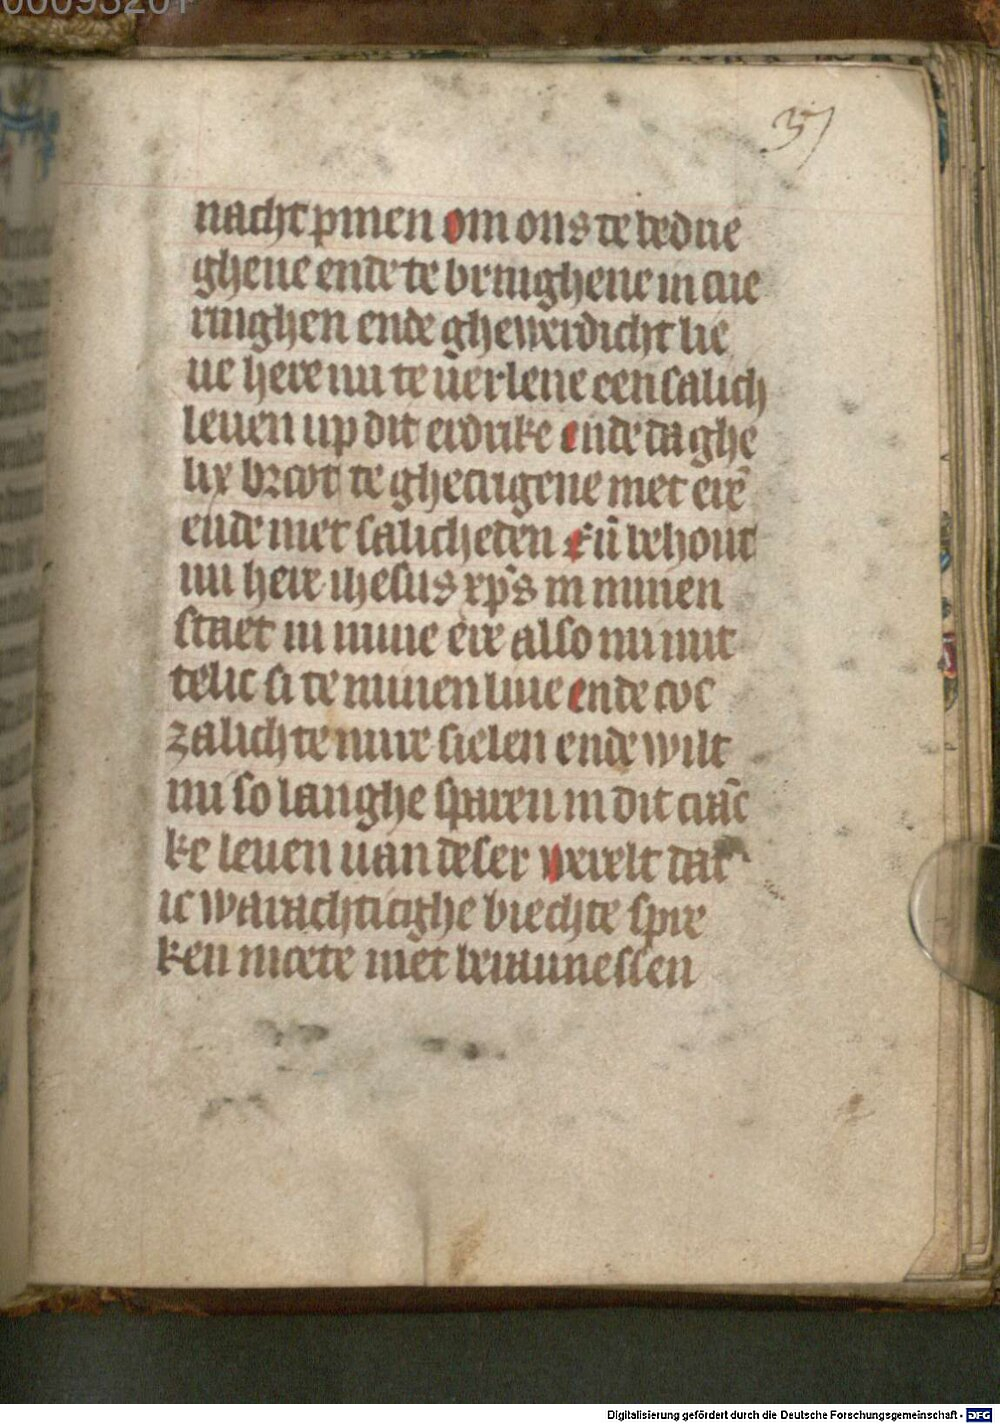 00093201
37
nacht pinen om ons te bedrie
ghene ende te bringhene in cue
ringhen ende ghewerdicht lie
ue here mi te uerlene een salich
leuen up dit erdrike ende daghe
lix broot te ghecrigene met eire
ende met salicheden Eñ behout
mi here ihesus xp̄s in minen
staet in mine eire also mi nut
telic si te minen liue ende ooc
zalich te mire sielen ende wilt
mi so langhe sparen in dit cranc
ke leuen uan deser werelt dat
ic warachticighe biechte spre
ken moete met berauwnessen
Digitalisierung gefördert durch die Deutsche Forschungsgemeinschaft - DFG